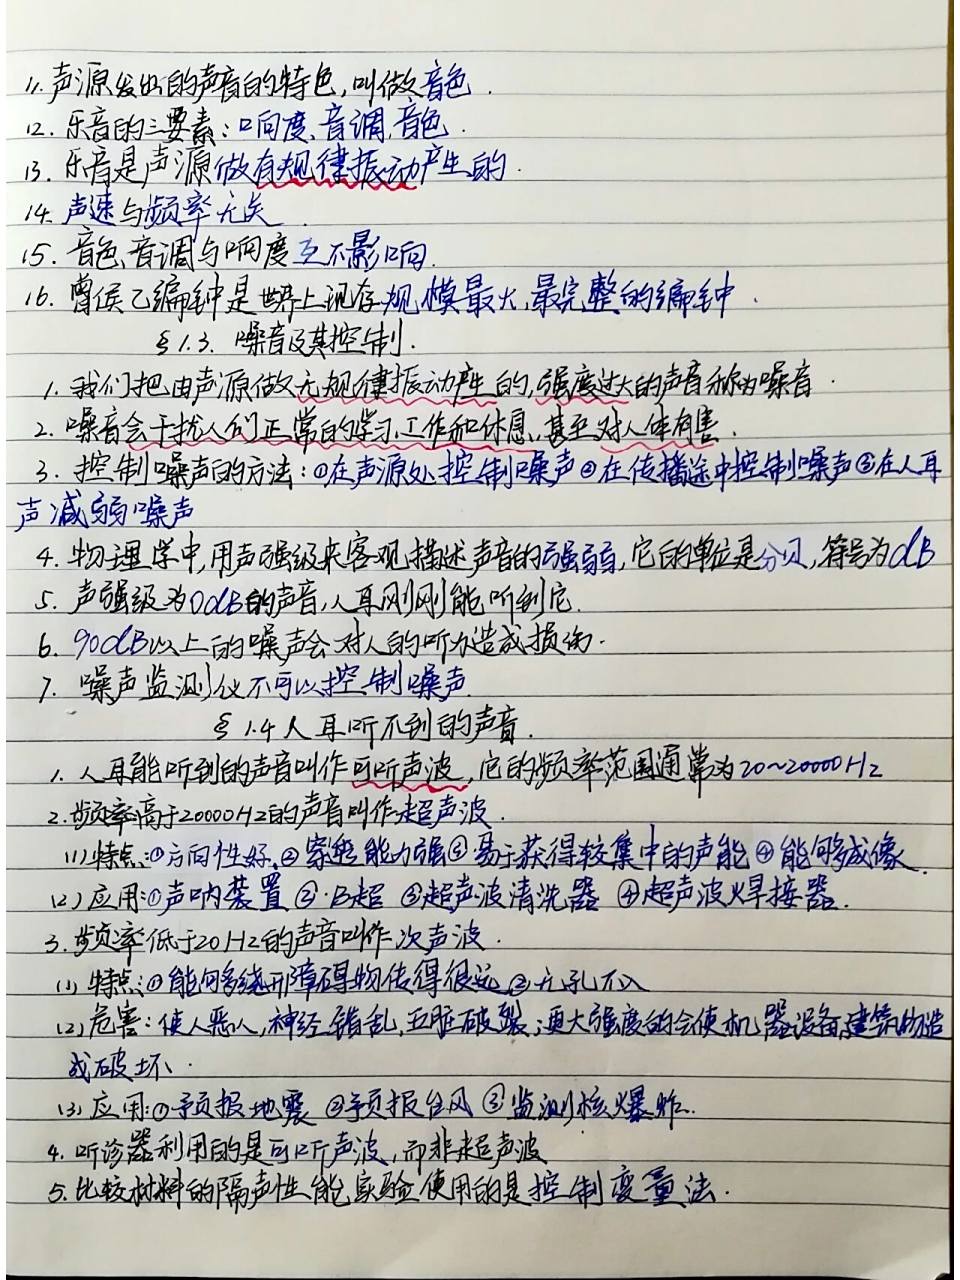 11. 声源发出的声音的特色,叫做音色.
12. 乐音的三要素:响度、音调、音色.
13. 乐音是声源做有规律振动产生的.
14. 声速与频率无关
15. 音色、音调与响度互不影响.
16. 曾侯乙编钟是世界上现存规模最大,最完整的编钟.
§1.3. 噪音及其控制.
1. 我们把由声源做无规律振动产生的,强度过大的声音称为噪音.
2. 噪音会干扰人们正常的学习、工作和休息,甚至对人体有害.
3. 控制噪声的方法:①在声源处控制噪声②在传播途中控制噪声③在人耳
声减弱噪声
4. 物理学中,用声强级来客观描述声音的强弱,它的单位是分贝,符号为dB
5. 声强级为0dB的声音,人耳刚刚能听到它.
6. 90dB以上的噪声会对人的听力造成损伤.
7. 噪声监测仪不可以控制噪声
§1.4人耳听不到的声音.
1. 人耳能听到的声音叫作可听声波,它的频率范围通常为20~20000Hz
2. 频率高于20000Hz的声音叫作超声波.
(1)特点:①方向性好,②穿透能力强③易于获得较集中的声能④能够成像.
(2)应用:①声呐装置②B超③超声波清洗器④超声波焊接器.
3. 频率低于20Hz的声音叫作次声波.
(1)特点:①能够绕开障碍物传得很远②无孔不入
(2)危害:使人恶心,神经错乱,五脏破裂;更大强度的会使机器设备、建筑物造
成破坏.
(3)应用:①预报地震②预报台风③监测核爆炸.
4. 听诊器利用的是可听声波,而非超声波
5. 比较材料的隔声性能实验使用的是控制变量法.